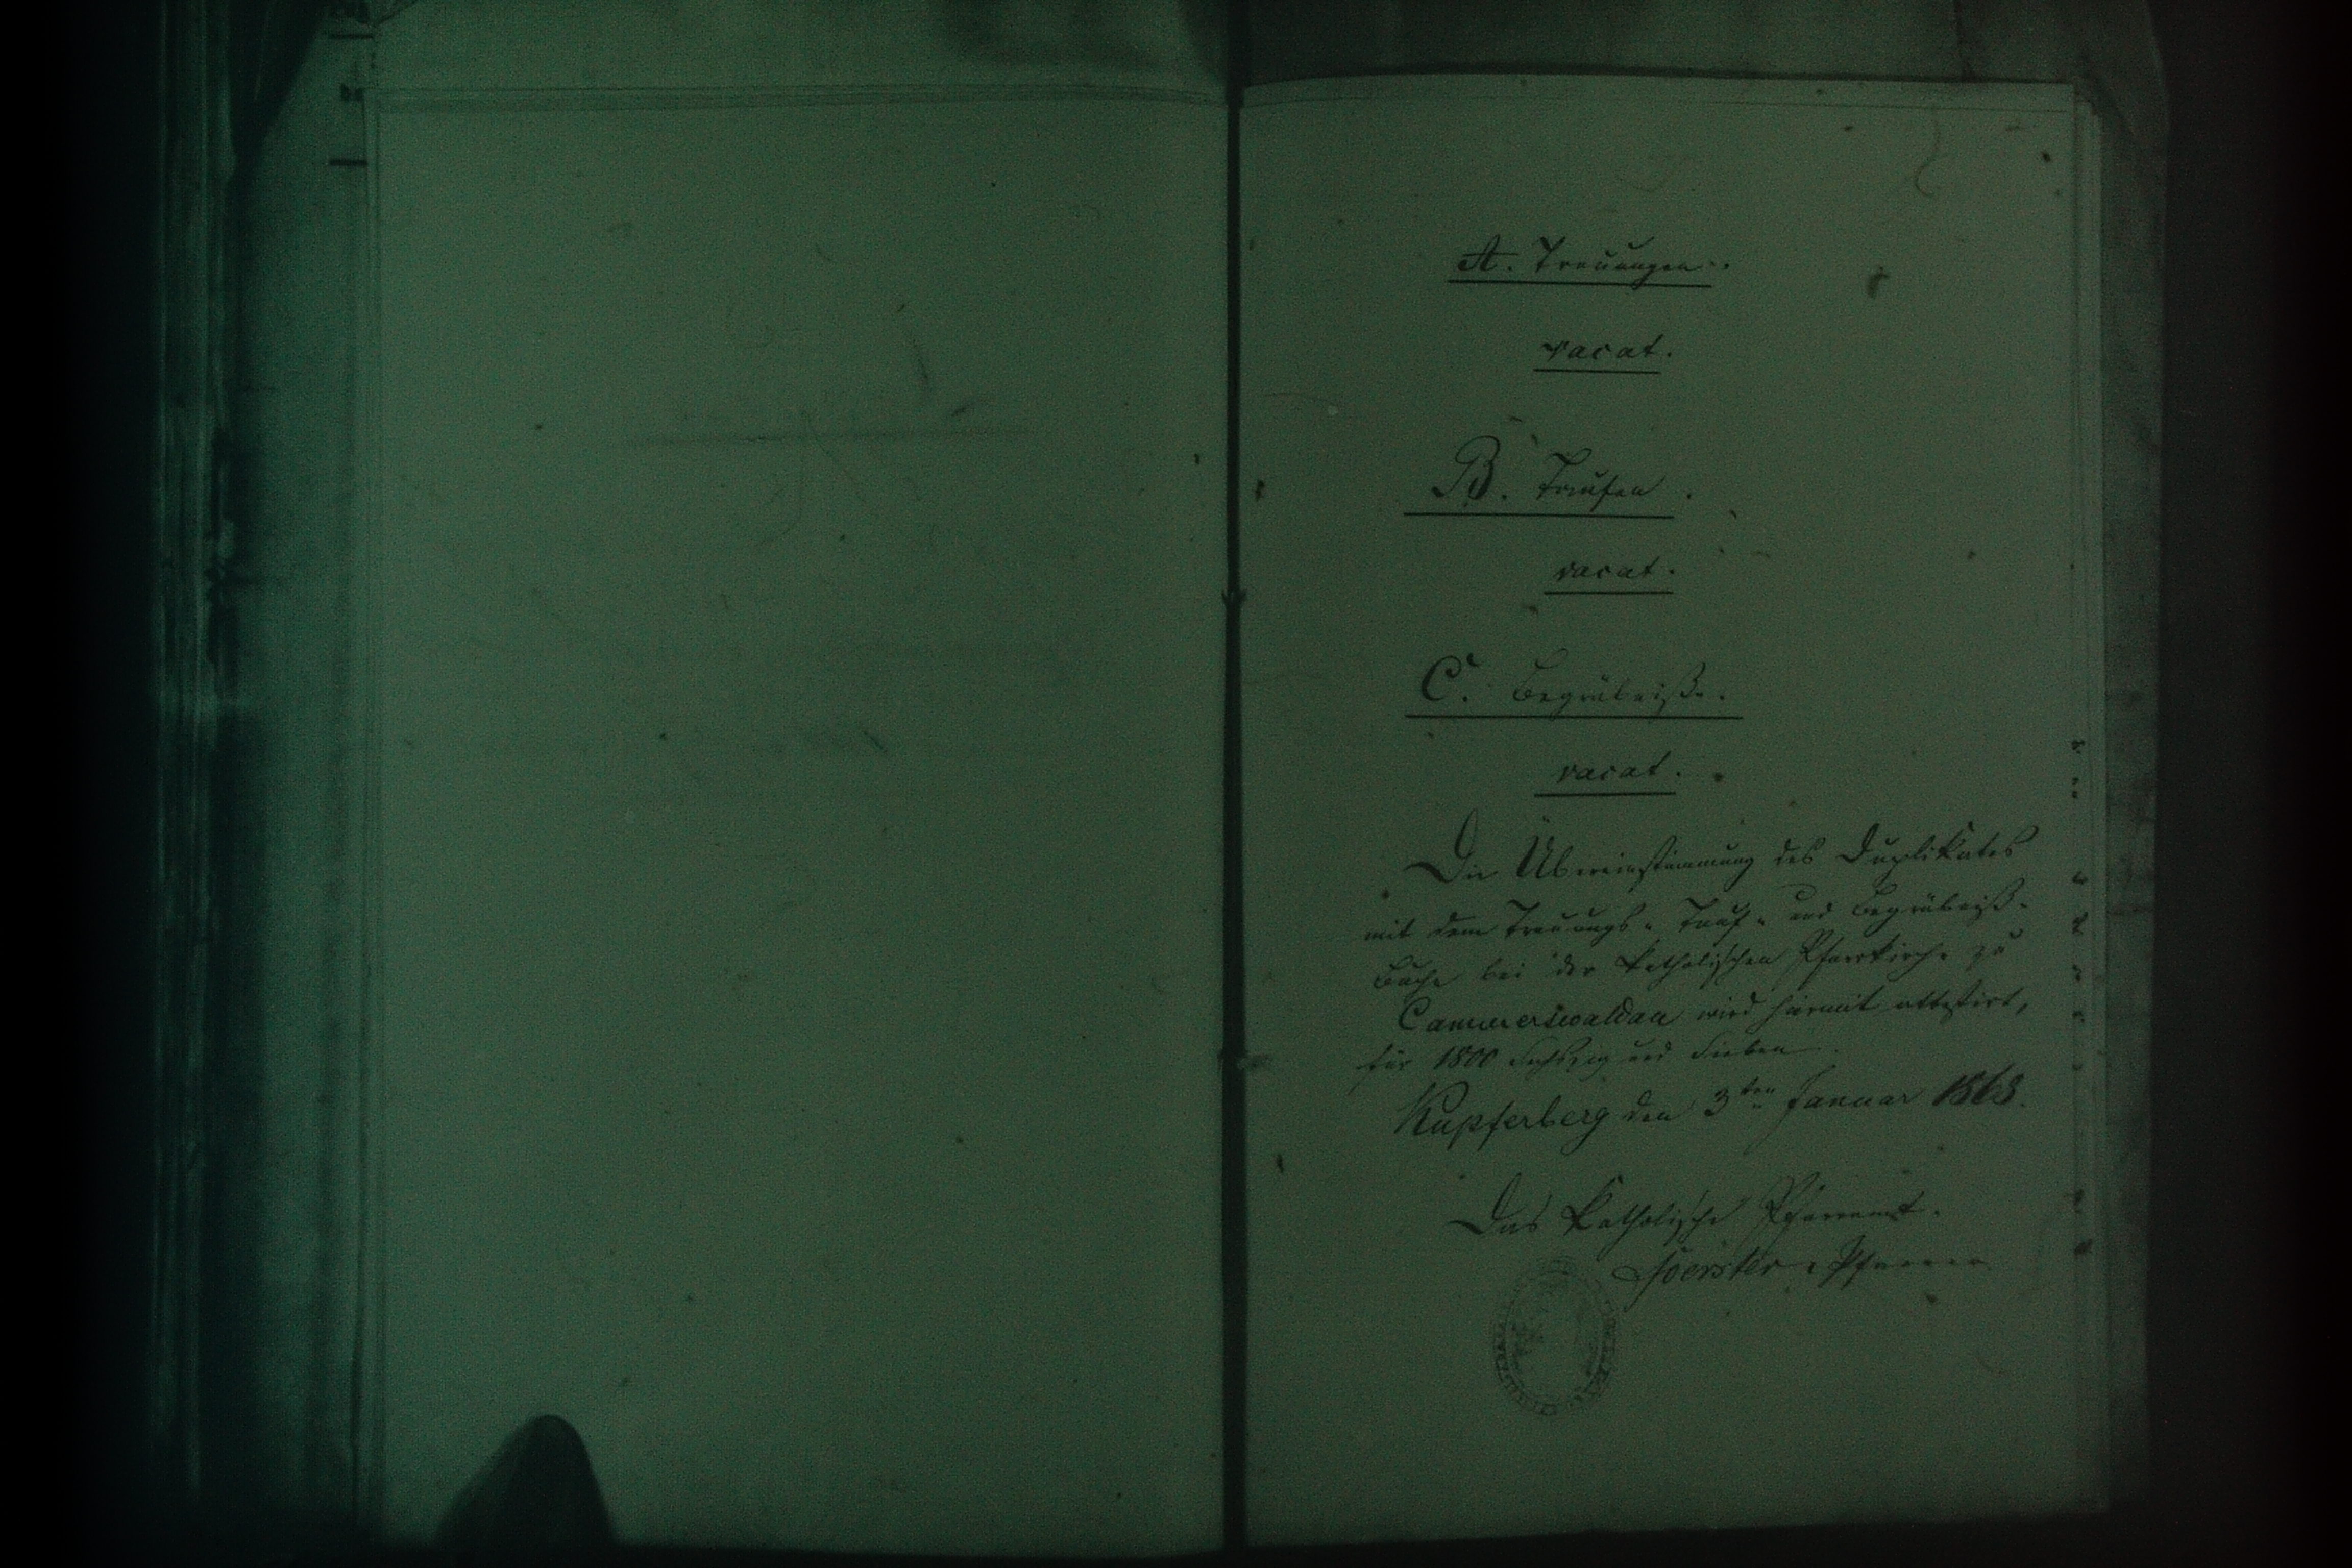 A. Trauungen.
vacat.
B. Taufen.
vacat.
C. Begräbniße.
vacat.
Die Übereinstimmung des Duplikates
mit dem Trauungs- Tauf- und Begräbniß-
Buche bei der katholischen Pfarrkirche zu
Cammerswaldau wird hiermit attestirt,
für 1800 Sechszig und Sieben
Kupferberg den 3ten Januar 1868.
Das Katholische Pfarramt.
Foerster, Pfarrer